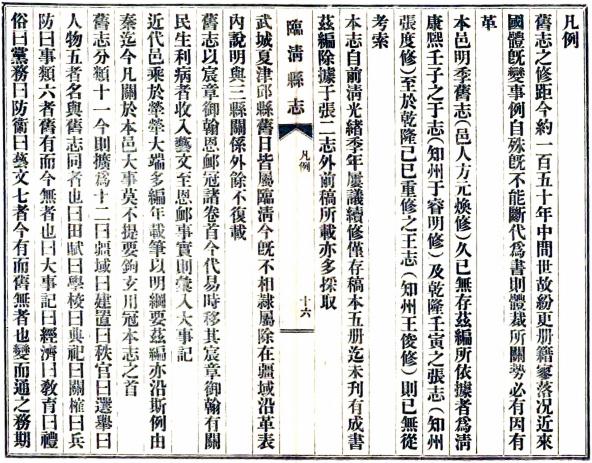 凡例
舊志之修距今約一百五十年中間世故紛更册籍寥落況近來
國體旣變事例自殊旣不能斷代爲書則體裁所關勢必有因有
革
本邑明季舊志(邑人方元煥修)久已無存茲編所依據者爲清
康熙壬子之于志(知州于睿明修)及乾隆壬寅之張志(知州
張度修)至於乾隆己巳重修之王志(知州王俊修)則已無從
考索
本志自前清光緒季年屢議續修僅存稿本五册迄未刋有成書
茲編除據于張二志外前稿所載亦多採取
臨清縣志
凡例
十六
武城夏津邱縣舊日皆屬臨清今旣不相隸屬除在疆域沿革表
內說明與三縣關係外餘不復載
舊志以宸章御翰恩䘏冠諸卷首今代易時移其宸章御翰有關
民生利病者收入藝文至恩䘏事實則彙入大事記
近代邑乘於犖犖大端多編年載筆以明綱要茲編亦沿斯例由
秦迄今凡關於本邑大事莫不提要鈎玄用冠本志之首
舊志分類十一今則擴爲十二曰疆域曰建置曰秩官曰選舉曰
人物五者名與舊志同者也曰田賦曰學校曰典祀曰關榷曰兵
防曰事類六者舊有而今無者也曰大事記曰經濟曰教育曰禮
俗曰黨務曰防衞曰藝文七者今有而舊無者也變而通之務期